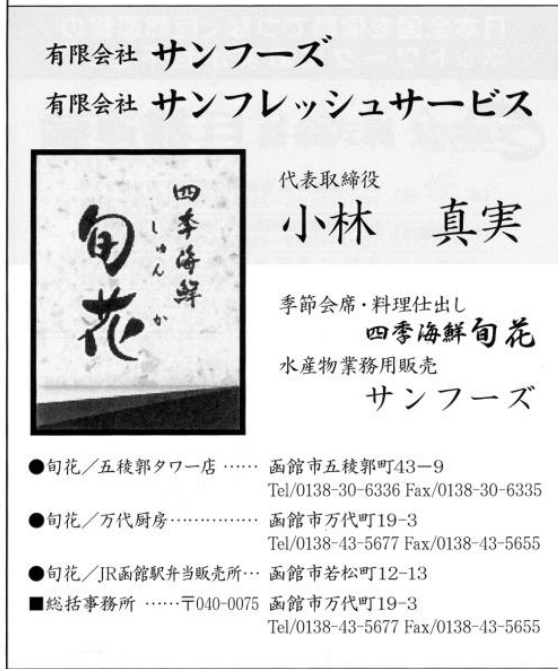 有限会社 サンフーズ
有限会社 サンフレッシュサービス
四季海鮮
しゅんか
旬花
代表取締役
小林 真実
季節会席・料理仕出し
四季海鮮旬花
水産物業務用販売
サンフーズ
●旬花／五稜郭タワー店 …… 函館市五稜郭町43－9
Tel/0138-30-6336 Fax/0138-30-6335
●旬花／万代厨房…………… 函館市万代町19-3
Tel/0138-43-5677 Fax/0138-43-5655
●旬花／JR函館駅弁当販売所… 函館市若松町12-13
■総括事務所 ……〒040-0075 函館市万代町19-3
Tel/0138-43-5677 Fax/0138-43-5655